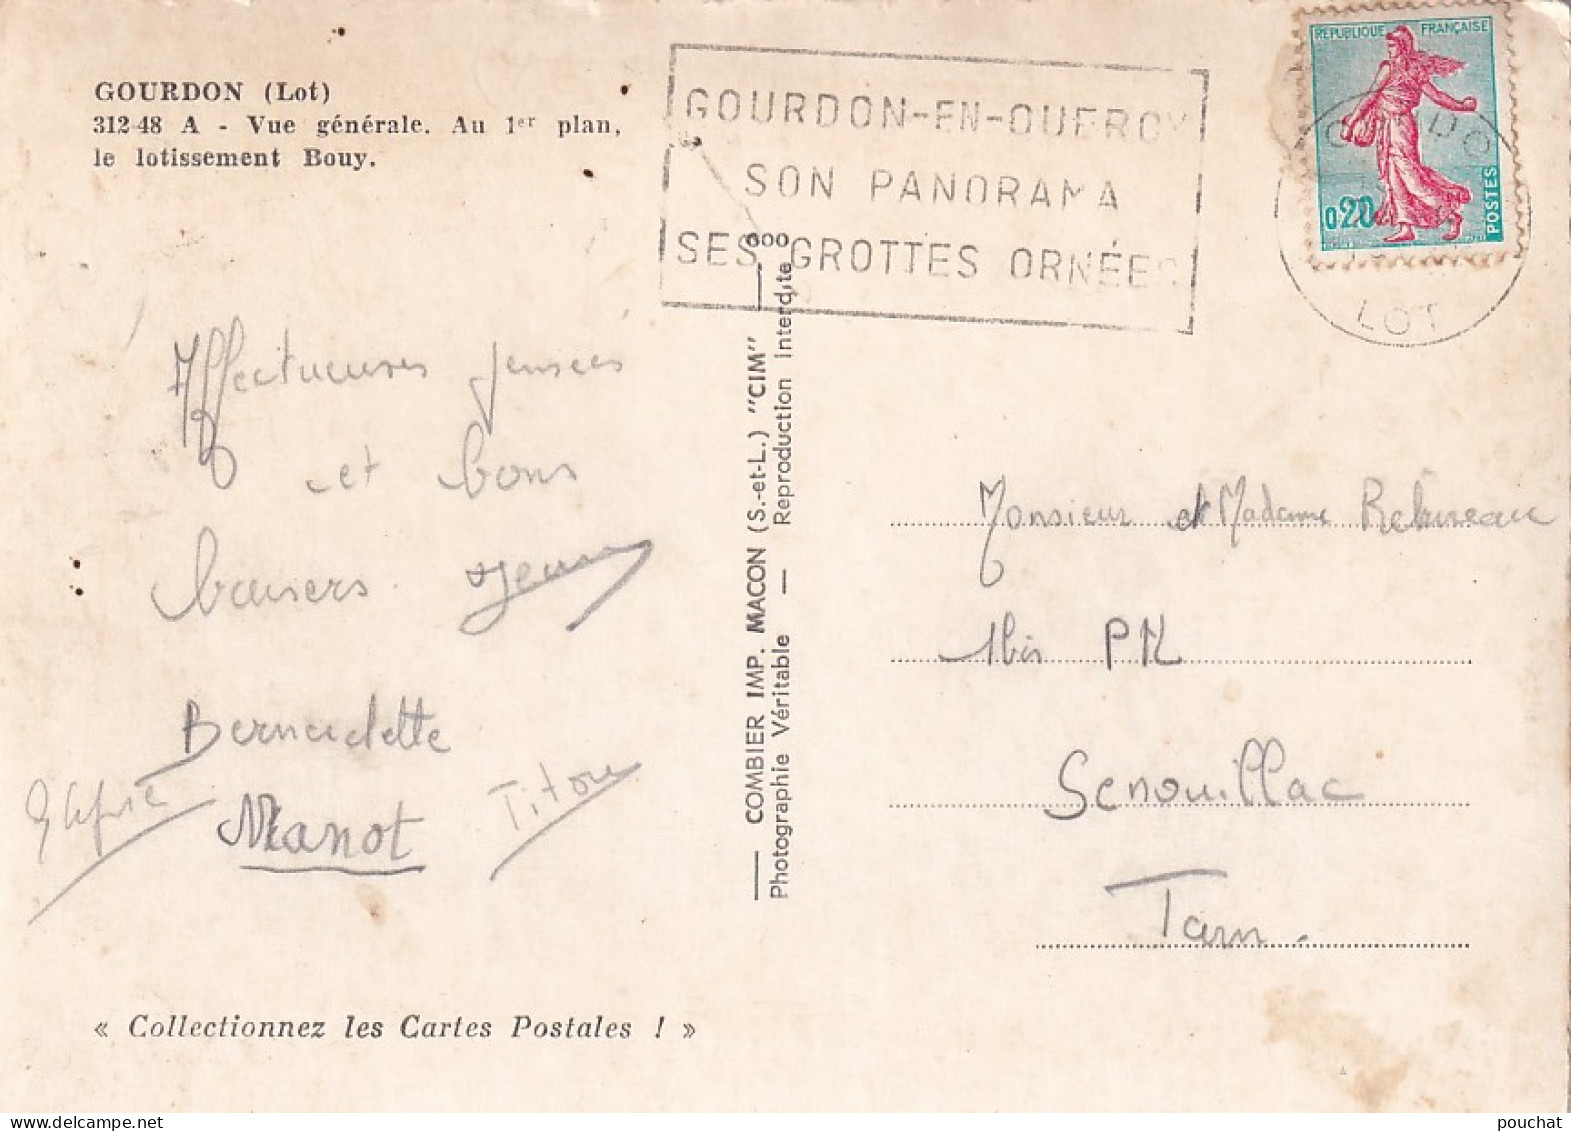 GOURDON (Lot)
312-48 A - Vue générale. Au 1er plan,
le lotissement Bouy.
GOURDON-EN-QUERCY
SON PANORAMA
SES GROTTES ORNÉES
REPUBLIQUE FRANÇAISE
0,20
POSTES
LOT
Affectueuses pensées
et bons
baisers.
Bernadette
Manot
Titou
« Collectionnez les Cartes Postales ! »
COMBIER IMP. MACON (S.-et-L.) "CIM"
Photographie Véritable — Reproduction Interdite
Monsieur et Madame
1bis PN
Senouillac
Tarn.
pouchat